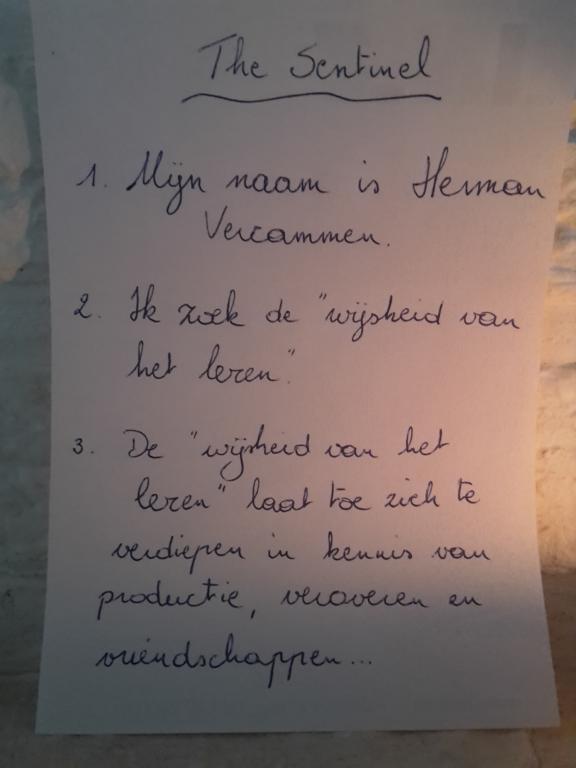 The Sentinel
1. Mijn naam is Herman
Vercammen.
2. Ik zoek de "wijsheid van
het leren".
3. De "wijsheid van het
leren" laat toe zich te
verdiepen in kennis van
productie, veroveren en
vriendschappen...